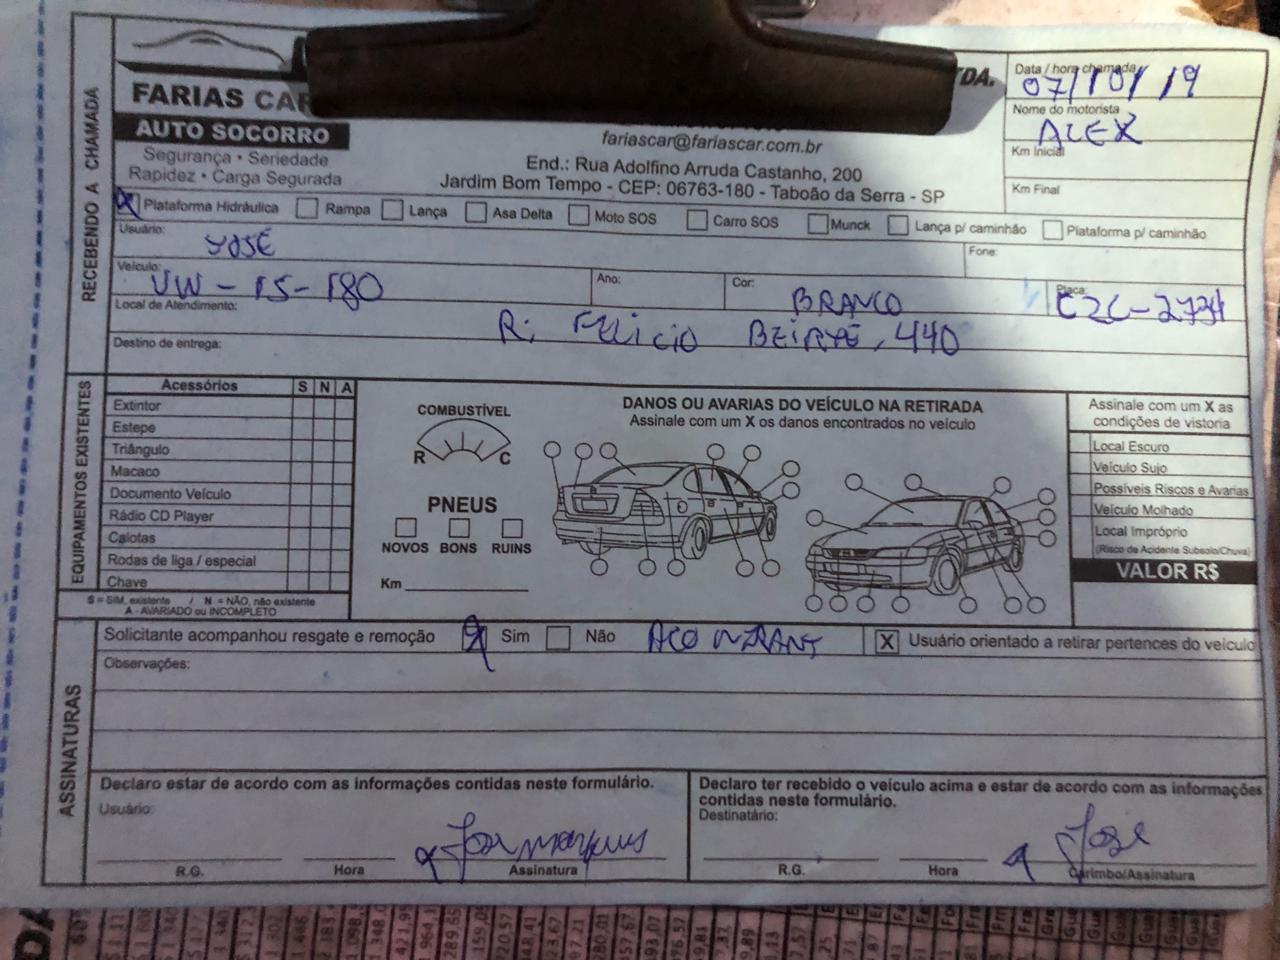 FARIAS CAR
TDA.
AUTO SOCORRO
Segurança • Seriedade
Rapidez • Carga Segurada
fariascar@fariascar.com.br
End.: Rua Adolfino Arruda Castanho, 200
Jardim Bom Tempo - CEP: 06763-180 - Taboão da Serra - SP
Data / hora chamada
07/10/19
Nome do motorista
ALEX
Km Inicial
Km Final
RECEBENDO A CHAMADA
X Plataforma Hidráulica Rampa Lança Asa Delta Moto SOS Carro SOS Munck Lança p/ caminhão Plataforma p/ caminhão
Usuário: JOSÉ Fone:
Veículo: VW - 15-180 Ano: Cor: BRANCO Placa:
Local de Atendimento: R. FELICIO 440
Destino de entrega:
EQUIPAMENTOS EXISTENTES
Acessórios S N A
Extintor
Estepe
Triângulo
Macaco
Documento Veículo
Rádio CD Player
Calotas
Rodas de liga / especial
Chave
S = SIM, existente / N = NÃO, não existente
A - AVARIADO ou INCOMPLETO
COMBUSTÍVEL
R C
PNEUS
NOVOS BONS RUINS
Km
DANOS OU AVARIAS DO VEÍCULO NA RETIRADA
Assinale com um X os danos encontrados no veículo
Assinale com um X as
condições de vistoria
Local Escuro
Veículo Sujo
Possíveis Riscos e Avarias
Veículo Molhado
Local Impróprio
(Risco de Acidente Subsolo/Chuva)
VALOR R$
ASSINATURAS
Solicitante acompanhou resgate e remoção X Sim Não X Usuário orientado a retirar pertences do veículo
Observações:
Declaro estar de acordo com as informações contidas neste formulário.
Usuário:
R.G. Hora Assinatura
Declaro ter recebido o veículo acima e estar de acordo com as informações
contidas neste formulário.
Destinatário:
Jose
R.G. Hora Carimbo/Assinatura